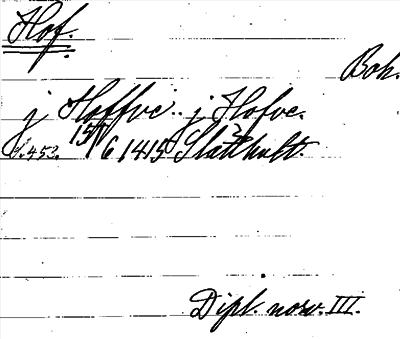 Hof.
Boh.
j Hoffve.. j Hofve.
S. 453. 15/6 1415
Dipl. nov. III.